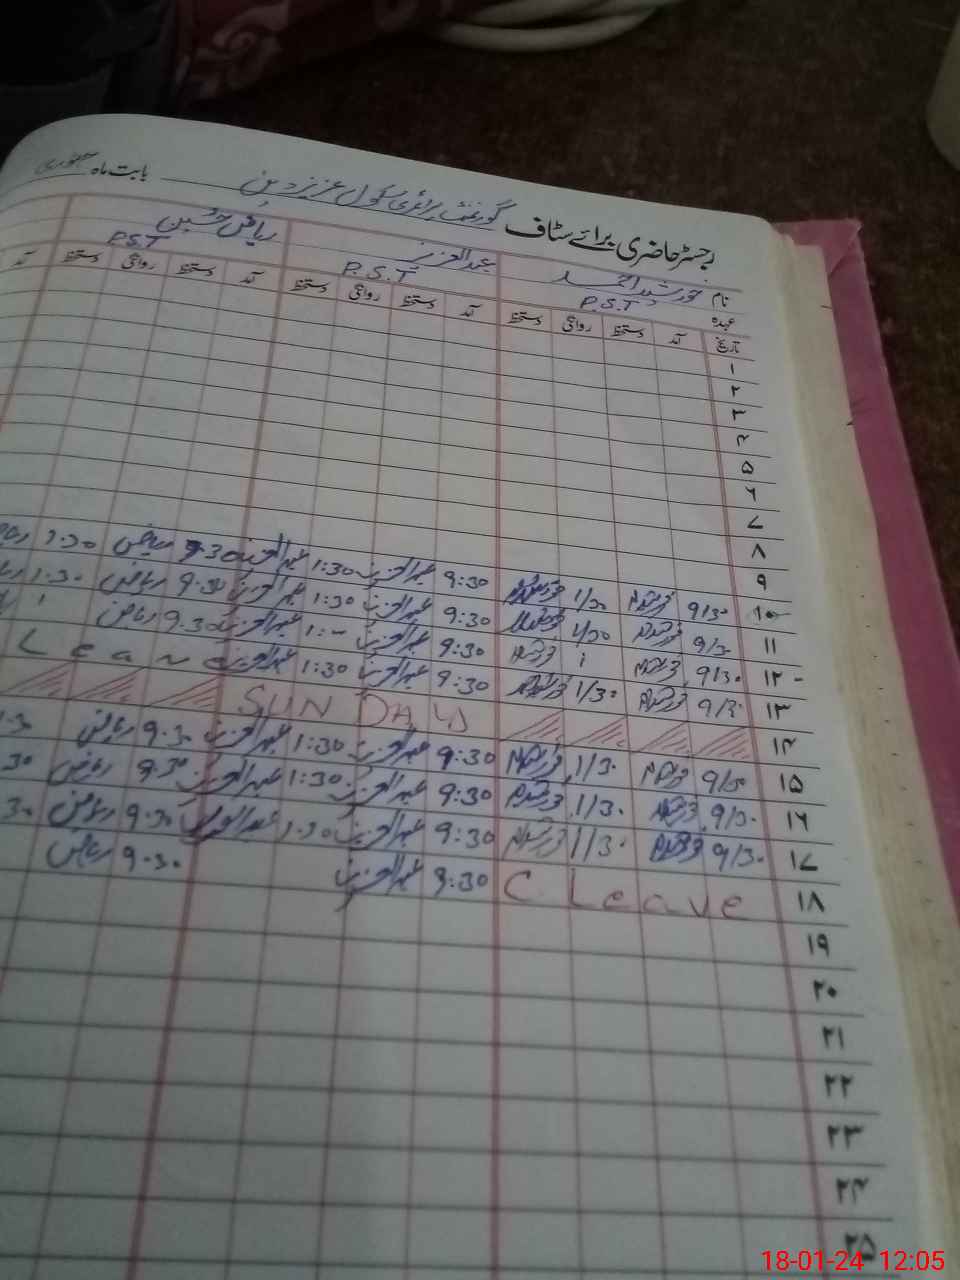 رجسٹر حاضری برائے سٹاف گورنمنٹ پرائمری سکول عزیز دین بابت ماہ جنوری
نام خورشید احمد عبدالعزیز ریاض حسین
عہدہ P.S.T P.S.T P.S.T
تاریخ آمد دستخط روانگی دستخط آمد دستخط روانگی دستخط آمد دستخط روانگی دستخط آمد
۱
۲
۳
۴
۵
۶
۷
۸
۹
۱۰ 9/30 خورشید 1/30 خورشید 9:30 عبدالعزیز 1:30 عبدالعزیز 9.30 ریاض 1.30
۱۱ 9/30 خورشید 1/30 خورشید 9:30 عبدالعزیز 1:30 عبدالعزیز 9.30 ریاض 1.30
۱۲ 9/30 خورشید 1 خورشید 9:30 عبدالعزیز 1:- عبدالعزیز 9.30 ریاض 1
۱۳ 9/30 خورشید 1/30 خورشید 9:30 عبدالعزیز 1:30 عبدالعزیز Leave
۱۴ SUNDAY
۱۵ 9/30 خورشید 1/30 خورشید 9:30 عبدالعزیز 1:30 عبدالعزیز 9.30 ریاض 1.30
۱۶ 9/30 خورشید 1/30 خورشید 9:30 عبدالعزیز 1:30 عبدالعزیز 9.30 ریاض 30
۱۷ 9/30 خورشید 1/30 خورشید 9:30 عبدالعزیز 1.30 عبدالعزیز 9.30 ریاض 30
۱۸ C Leave 9:30 عبدالعزیز 9.30 ریاض
۱۹
۲۰
۲۱
۲۲
۲۳
۲۴
۲۵
18-01-24 12:05